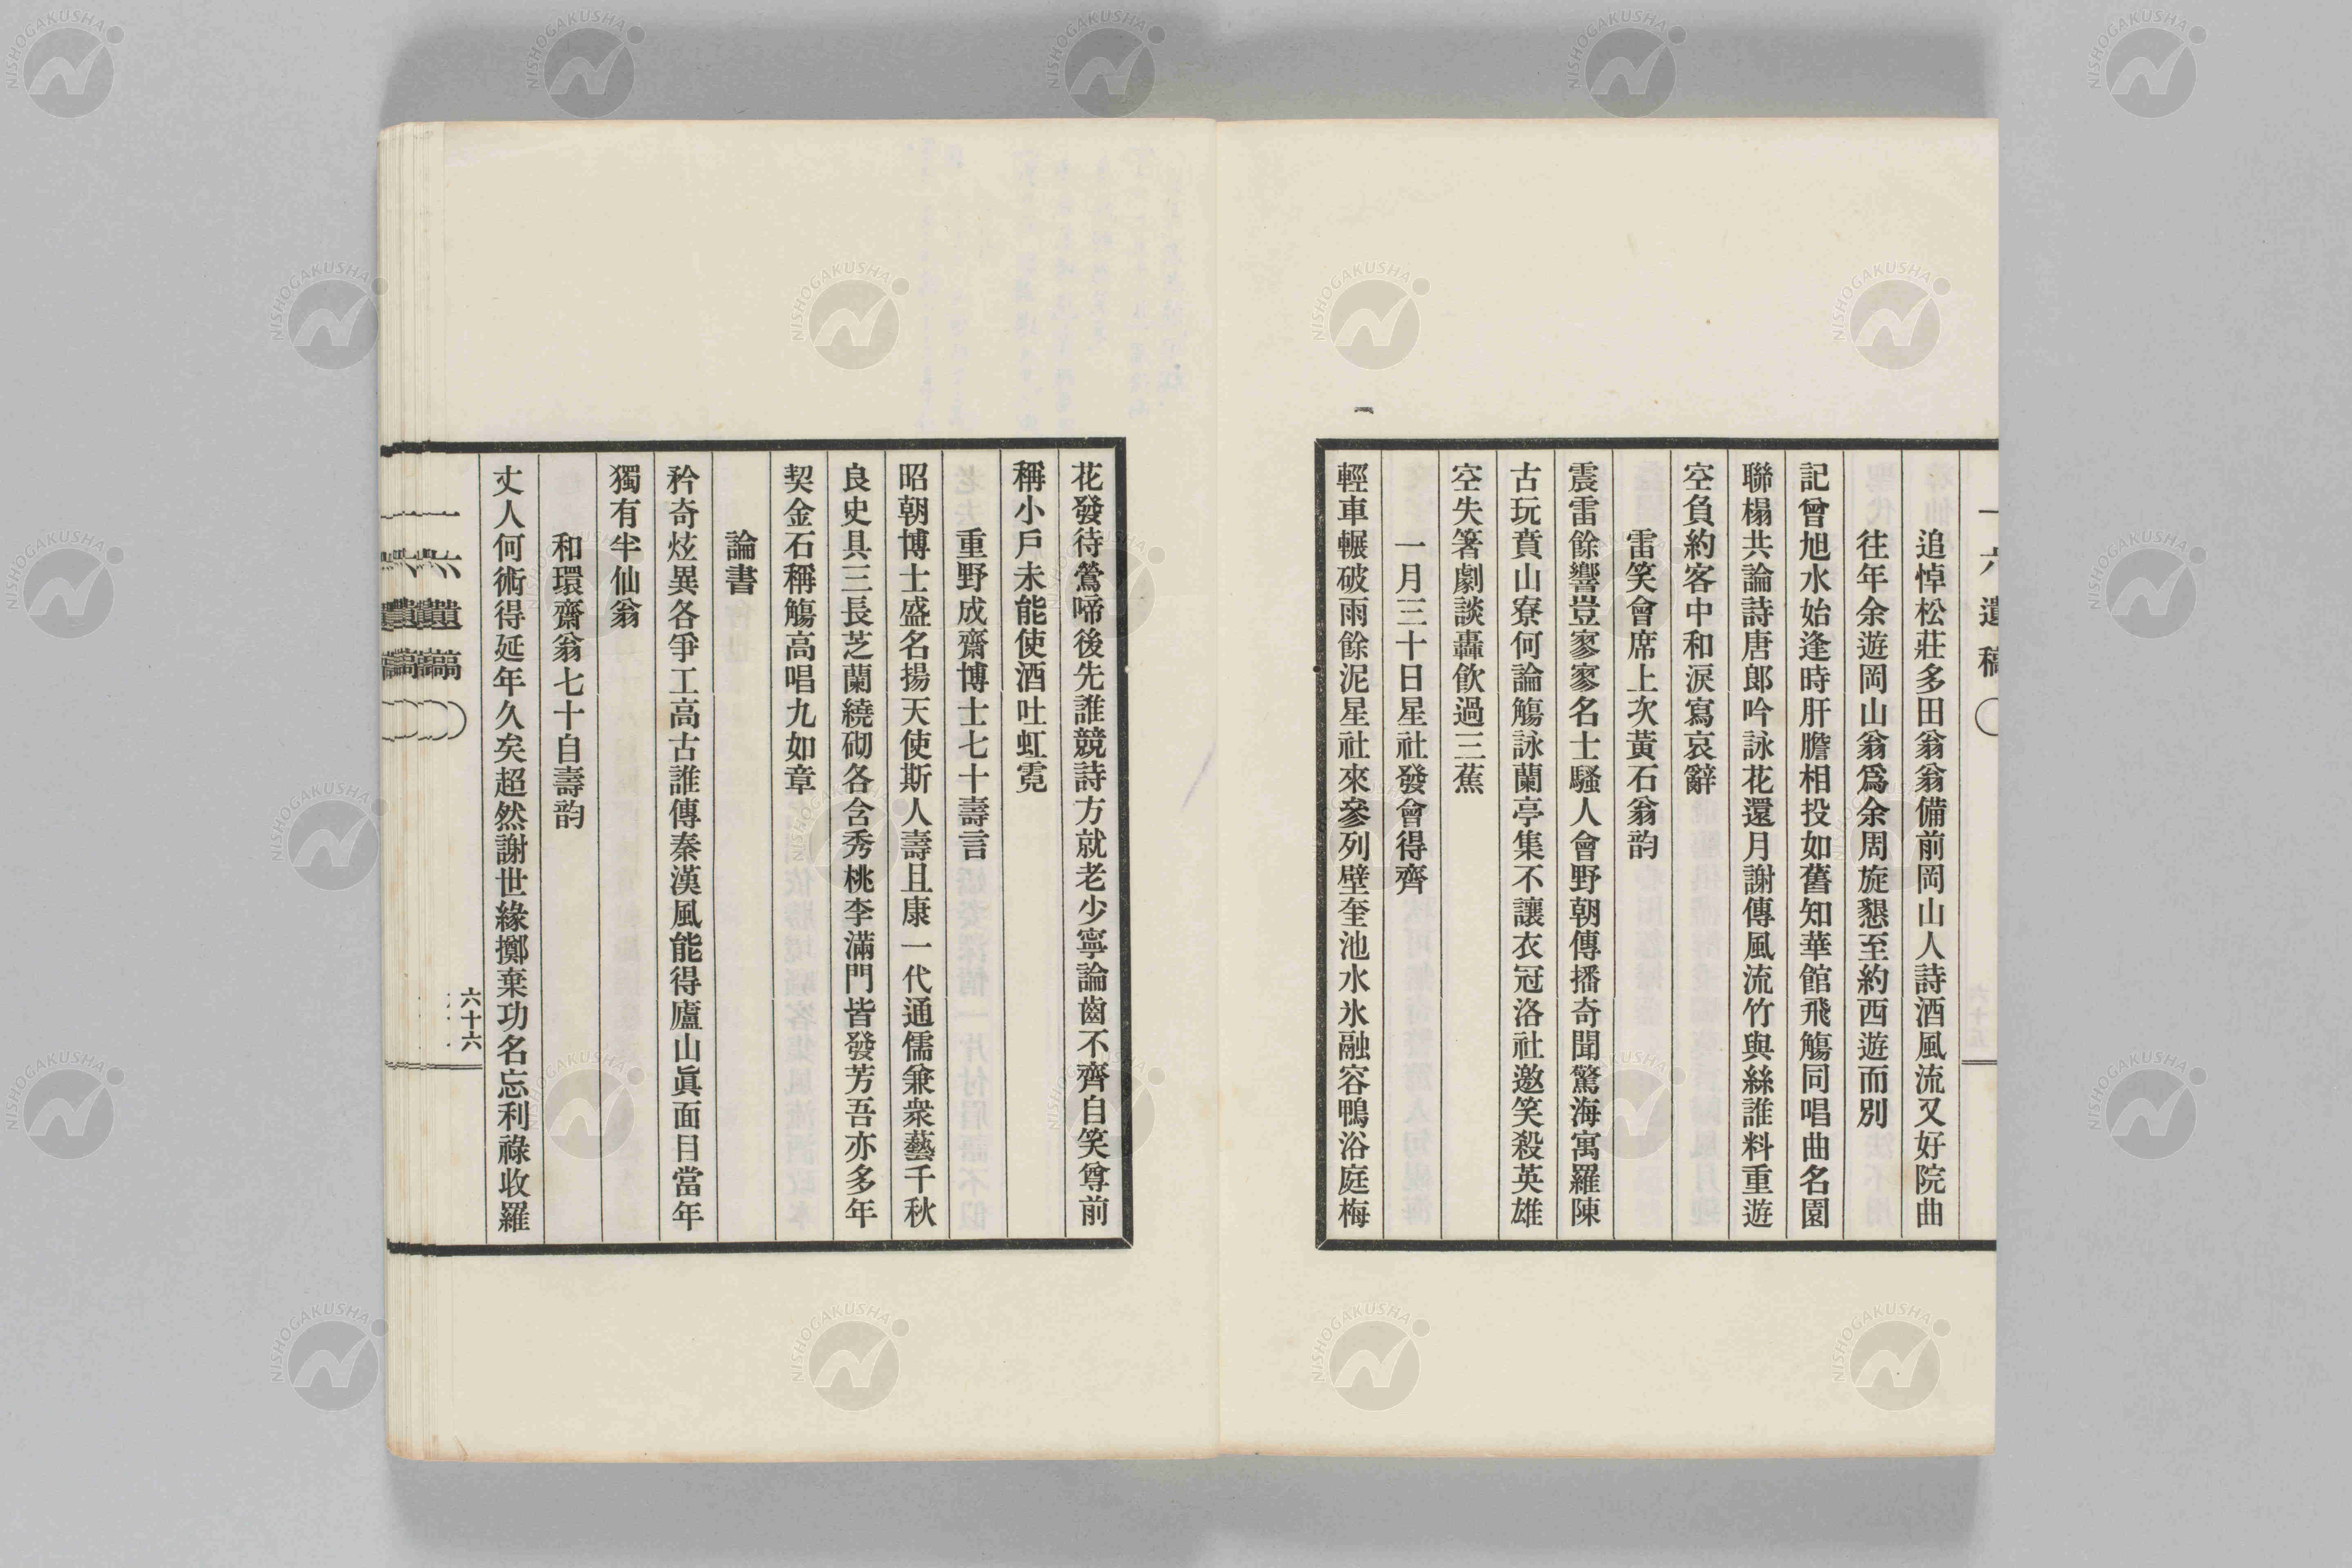 一六遺稿
追悼松莊多田翁翁備前岡山人詩酒風流又好院曲
往年余遊岡山翁爲余周旋懇至約西遊而別
記曾旭水始逢時肝膽相投如舊知華館飛觴同唱曲名園
聯榻共論詩唐郎吟詠花還月謝傳風流竹與絲誰料重遊
空負約客中和淚寫哀辭
雷笑會席上次黃石翁韵
震雷餘響豈寥寥名士騷人會野朝傳播奇聞驚海寓羅陳
古玩賁山寮何論觴詠蘭亭集不讓衣冠洛社邀笑殺英雄
空失箸劇談轟飮過三蕉
一月三十日星社發會得齊
輕車輾破雨餘泥星社來參列壁奎池水氷融容鴨浴庭梅
花發待鶯啼後先誰競詩方就老少寧論齒不齊自笑尊前
稱小戶未能使酒吐虹霓
重野成齋博士七十壽言
昭朝博士盛名揚天使斯人壽且康一代通儒兼衆藝千秋
良史具三長芝蘭繞砌各含秀桃李滿門皆發芳吾亦多年
契金石稱觴高唱九如章
論書
矜奇炫異各爭工高古誰傳秦漢風能得廬山眞面目當年
獨有半仙翁
和環齋翁七十自壽韵
丈人何術得延年久矣超然謝世緣擲棄功名忘利祿收羅
一六遺稿
六十六
NISHOGAKUSHA